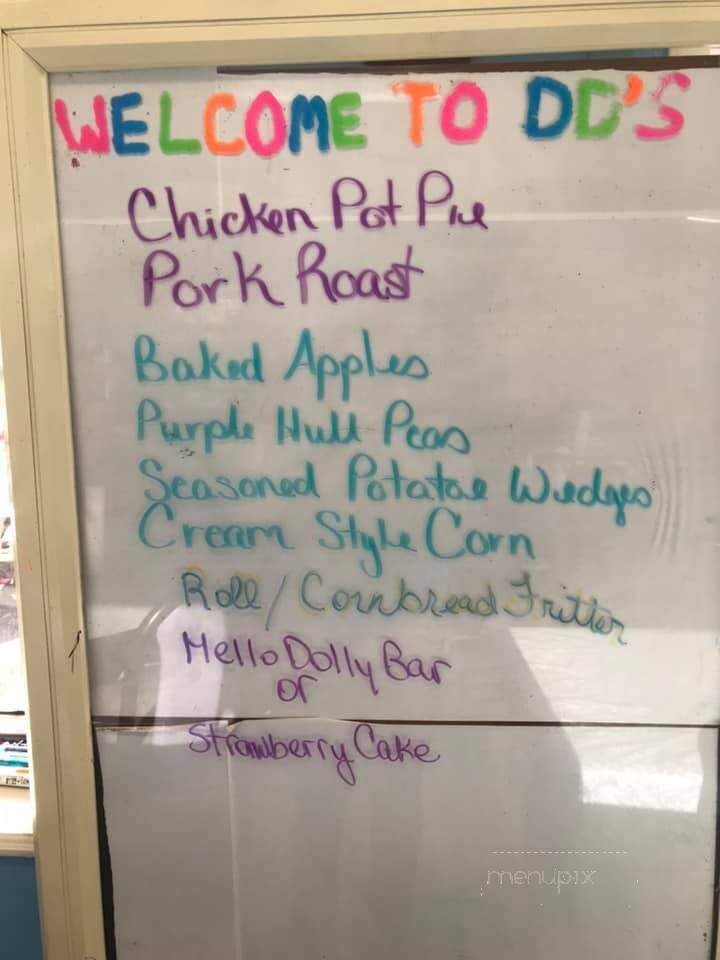 WELCOME TO DD'S
Chicken Pot Pie
Pork Roast
Baked Apples
Purple Hull Peas
Seasoned Potatoe Wedges
Cream Style Corn
Roll/Cornbread Fritter
Hello Dolly Bar
or
Strawberry Cake
menupix